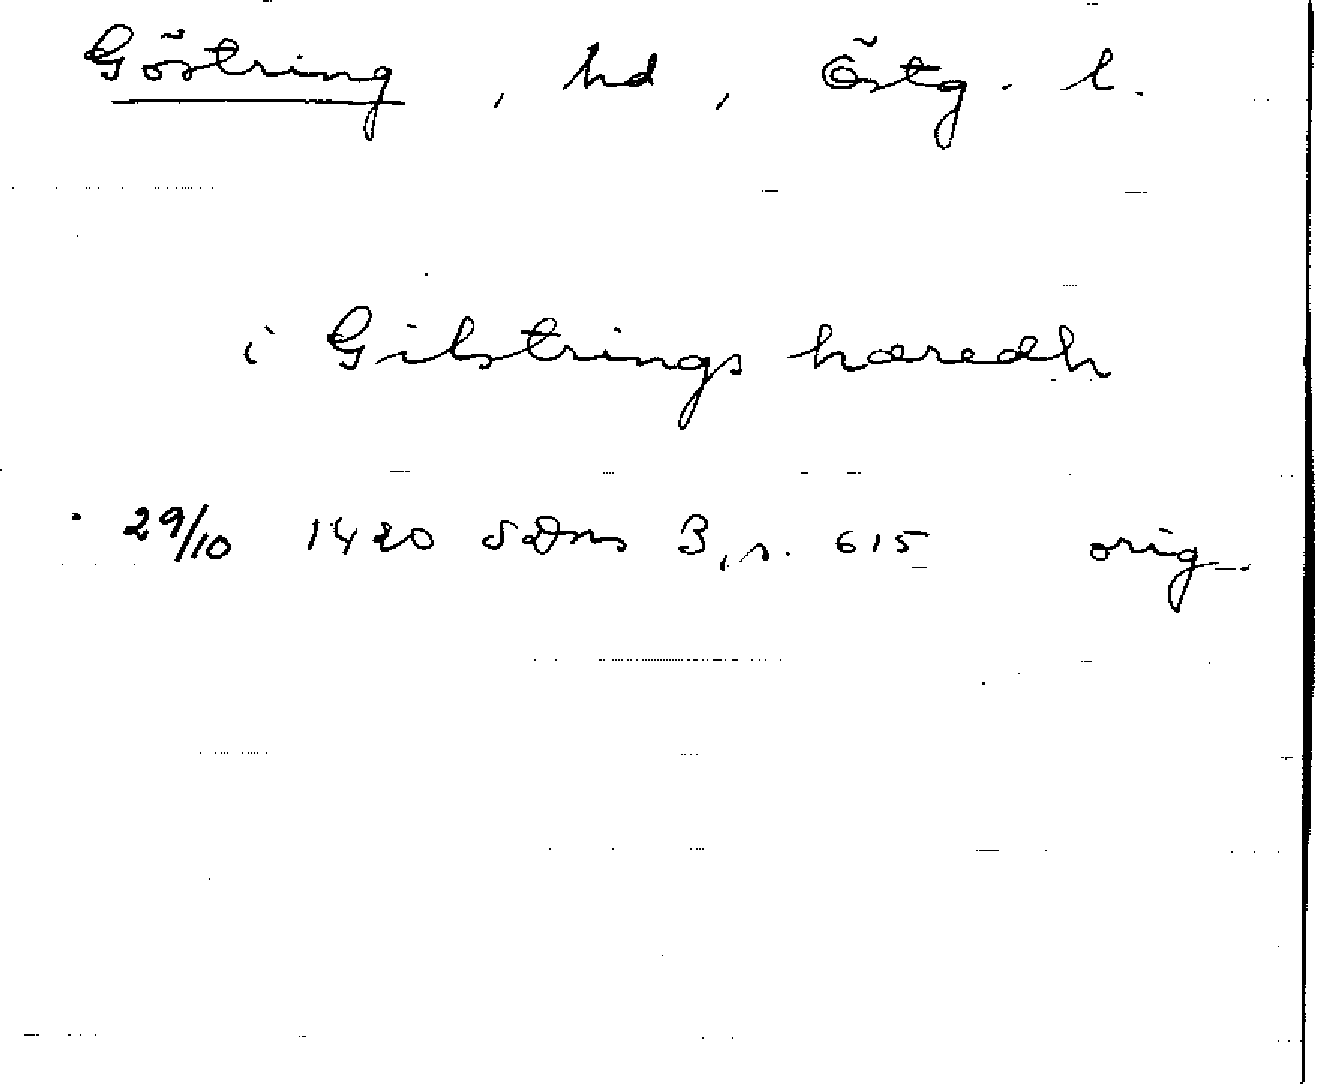 Göstring, hd, Östg. l.
i Gilstrings hæredh
29/10 1420 SDns 3, s. 615 orig.